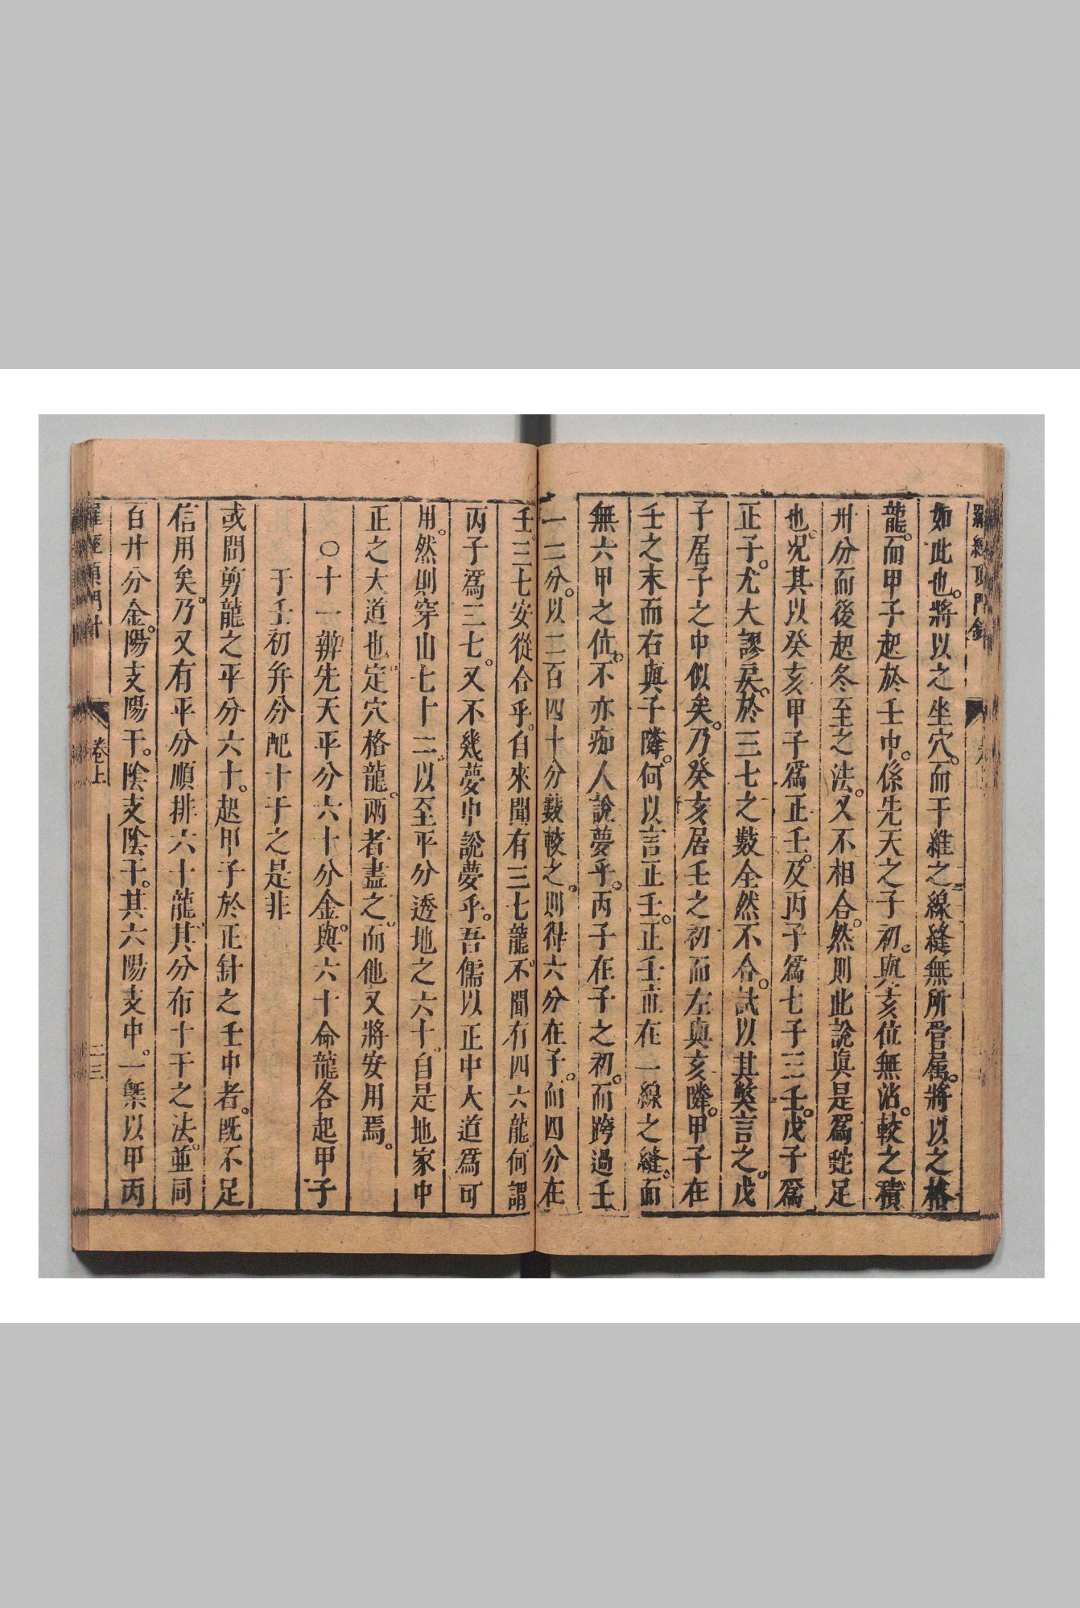 羅經頂門針
如此也。將以之坐穴。而干維之線縫無所管屬。將以之格
龍。而甲子起於壬中。係先天之子初。與亥位無沾。較之積
卅分而後起冬至之法。又不相合。然則此說眞是爲蛇足
也。况其以癸亥甲子爲正壬。及丙子爲七子三壬。戊子爲
正子。尤大謬戾。於三七之數全然不合。試以其獘言之。戊
子居子之中似矣。乃癸亥居壬之初而左與亥隣。甲子在
壬之末而右與子隣。何以言正壬。正壬直在一線之縫。而
無六甲之位。不亦痴人說夢乎。丙子在子之初。而跨過壬
一二分。以二百四十分數較之。則得六分在子。而四分在
壬。三七安從合乎。自來聞有三七龍。不聞有四六龍。何謂
丙子爲三七。又不幾夢中說夢乎。吾儒以正中大道爲可
用。然則穿山七十二。以至平分透地之六十。自是地家中
正之大道也。定穴格龍。兩者盡之。而他又將安用焉。
〇十一辨先天平分六十分金。與六十命龍各起甲子
于壬初并分配十干之是非
或問剪龍之平分六十。起甲子於正針之壬中者。旣不足
信用矣。乃又有平分順排六十龍。其分布十干之法。並同
百卄分金。陽支陽干。陰支陰干。其六陽支中。一槩以甲丙
羅經頂門針
卷上
二三